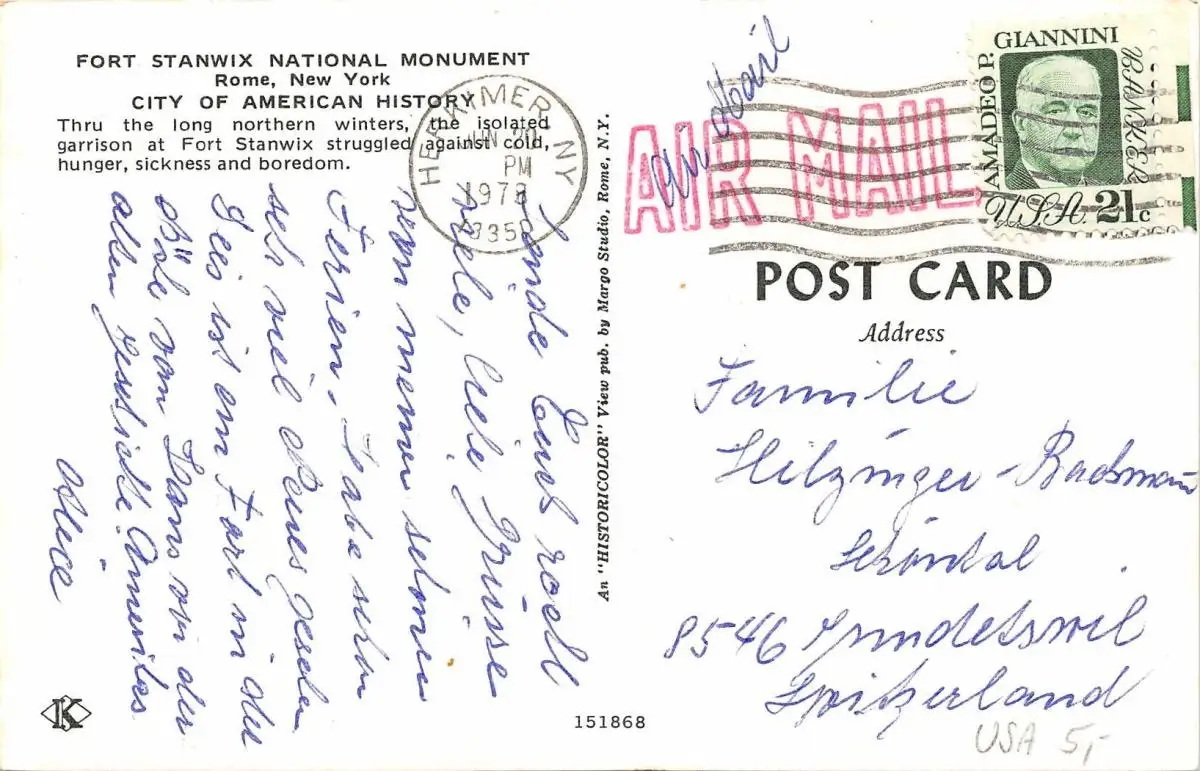 FORT STANWIX NATIONAL MONUMENT
Rome, New York
CITY OF AMERICAN HISTORY
Thru the long northern winters, the isolated
garrison at Fort Stanwix struggled against cold,
hunger, sickness and boredom.
HERKIMER, NY
JUN 20
PM
1978
Air Mail
AIR MAIL
AMADEO P. GIANNINI
BANKER
USA 21c
Sende Euch rasch
viele, liebe Grüsse
von meinen schönen
Ferien. Habe schon
seh viel
ist ein Fort in der
vom Haus von der
allen
Alice
An "HISTORICOLOR" View pub. by Margo Studio, Rome, N.Y.
POST CARD
Address
Familie
Hilzinger - Bachmann
8546 Gundetswil
Switzerland
USA 5,-
K
151868